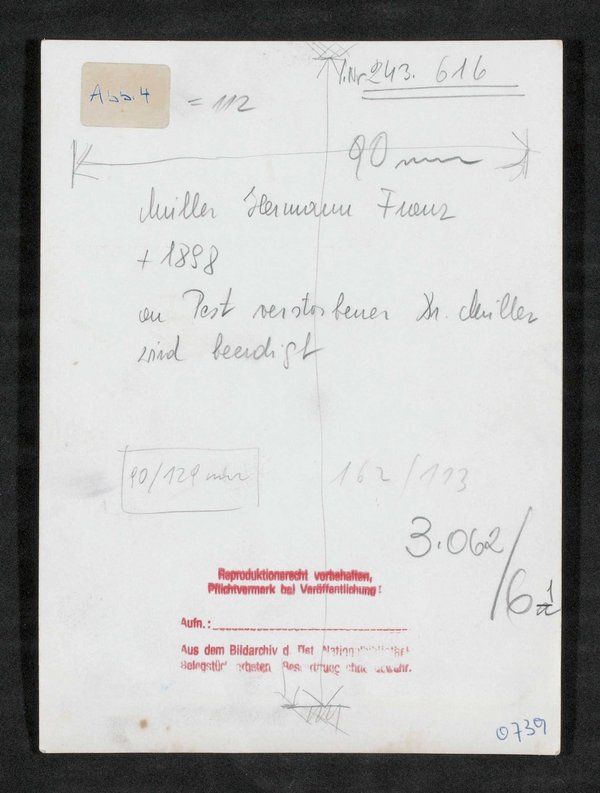 Abb. 4
= 112
I. Nr 243. 616
90 mm
Müller Hermann Franz
+ 1898
an Pest verstorbener Dr. Müller
wird beerdigt
90/129 mm
162/113
3.062/6
Reproduktionsrecht vorbehalten,
Pflichtvermerk bei Veröffentlichung:
Aufn.:
Aus dem Bildarchiv d. Öst. Nationalbibliothek
Belegstück erbeten. ohne Gewähr.
0739